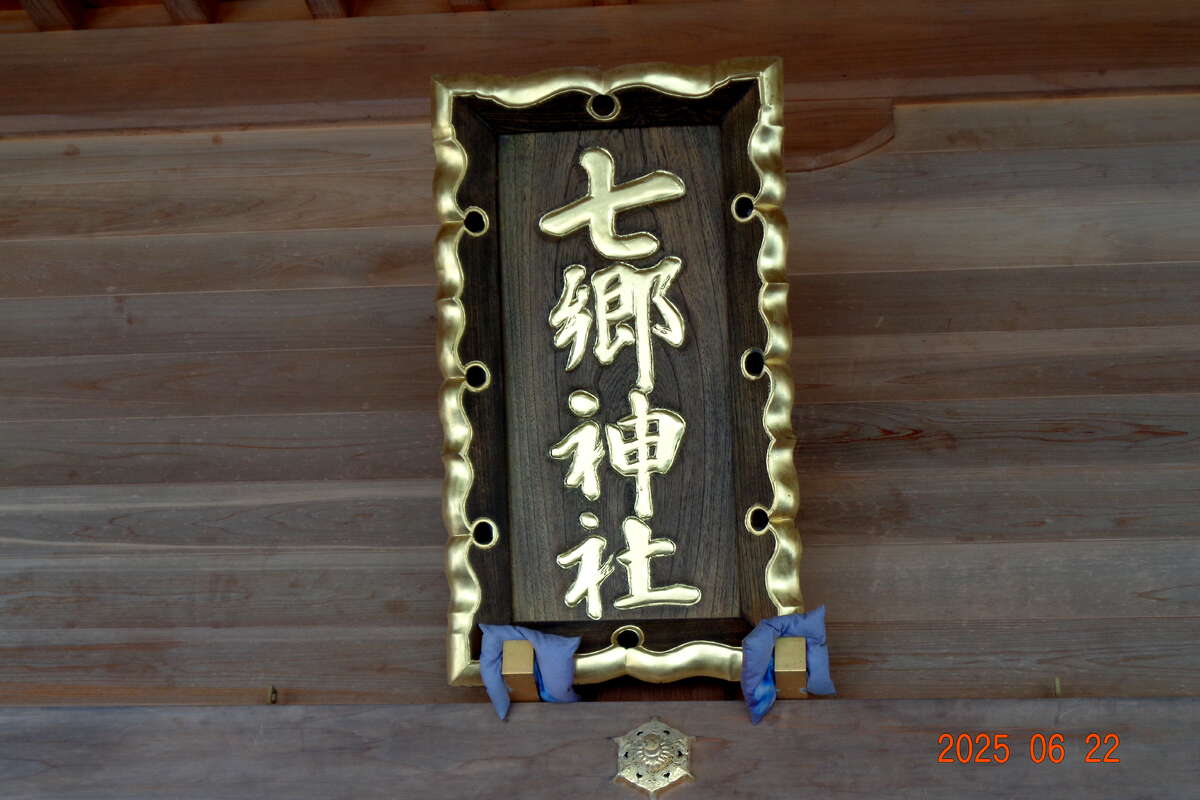 七郷神社
2025 06 22